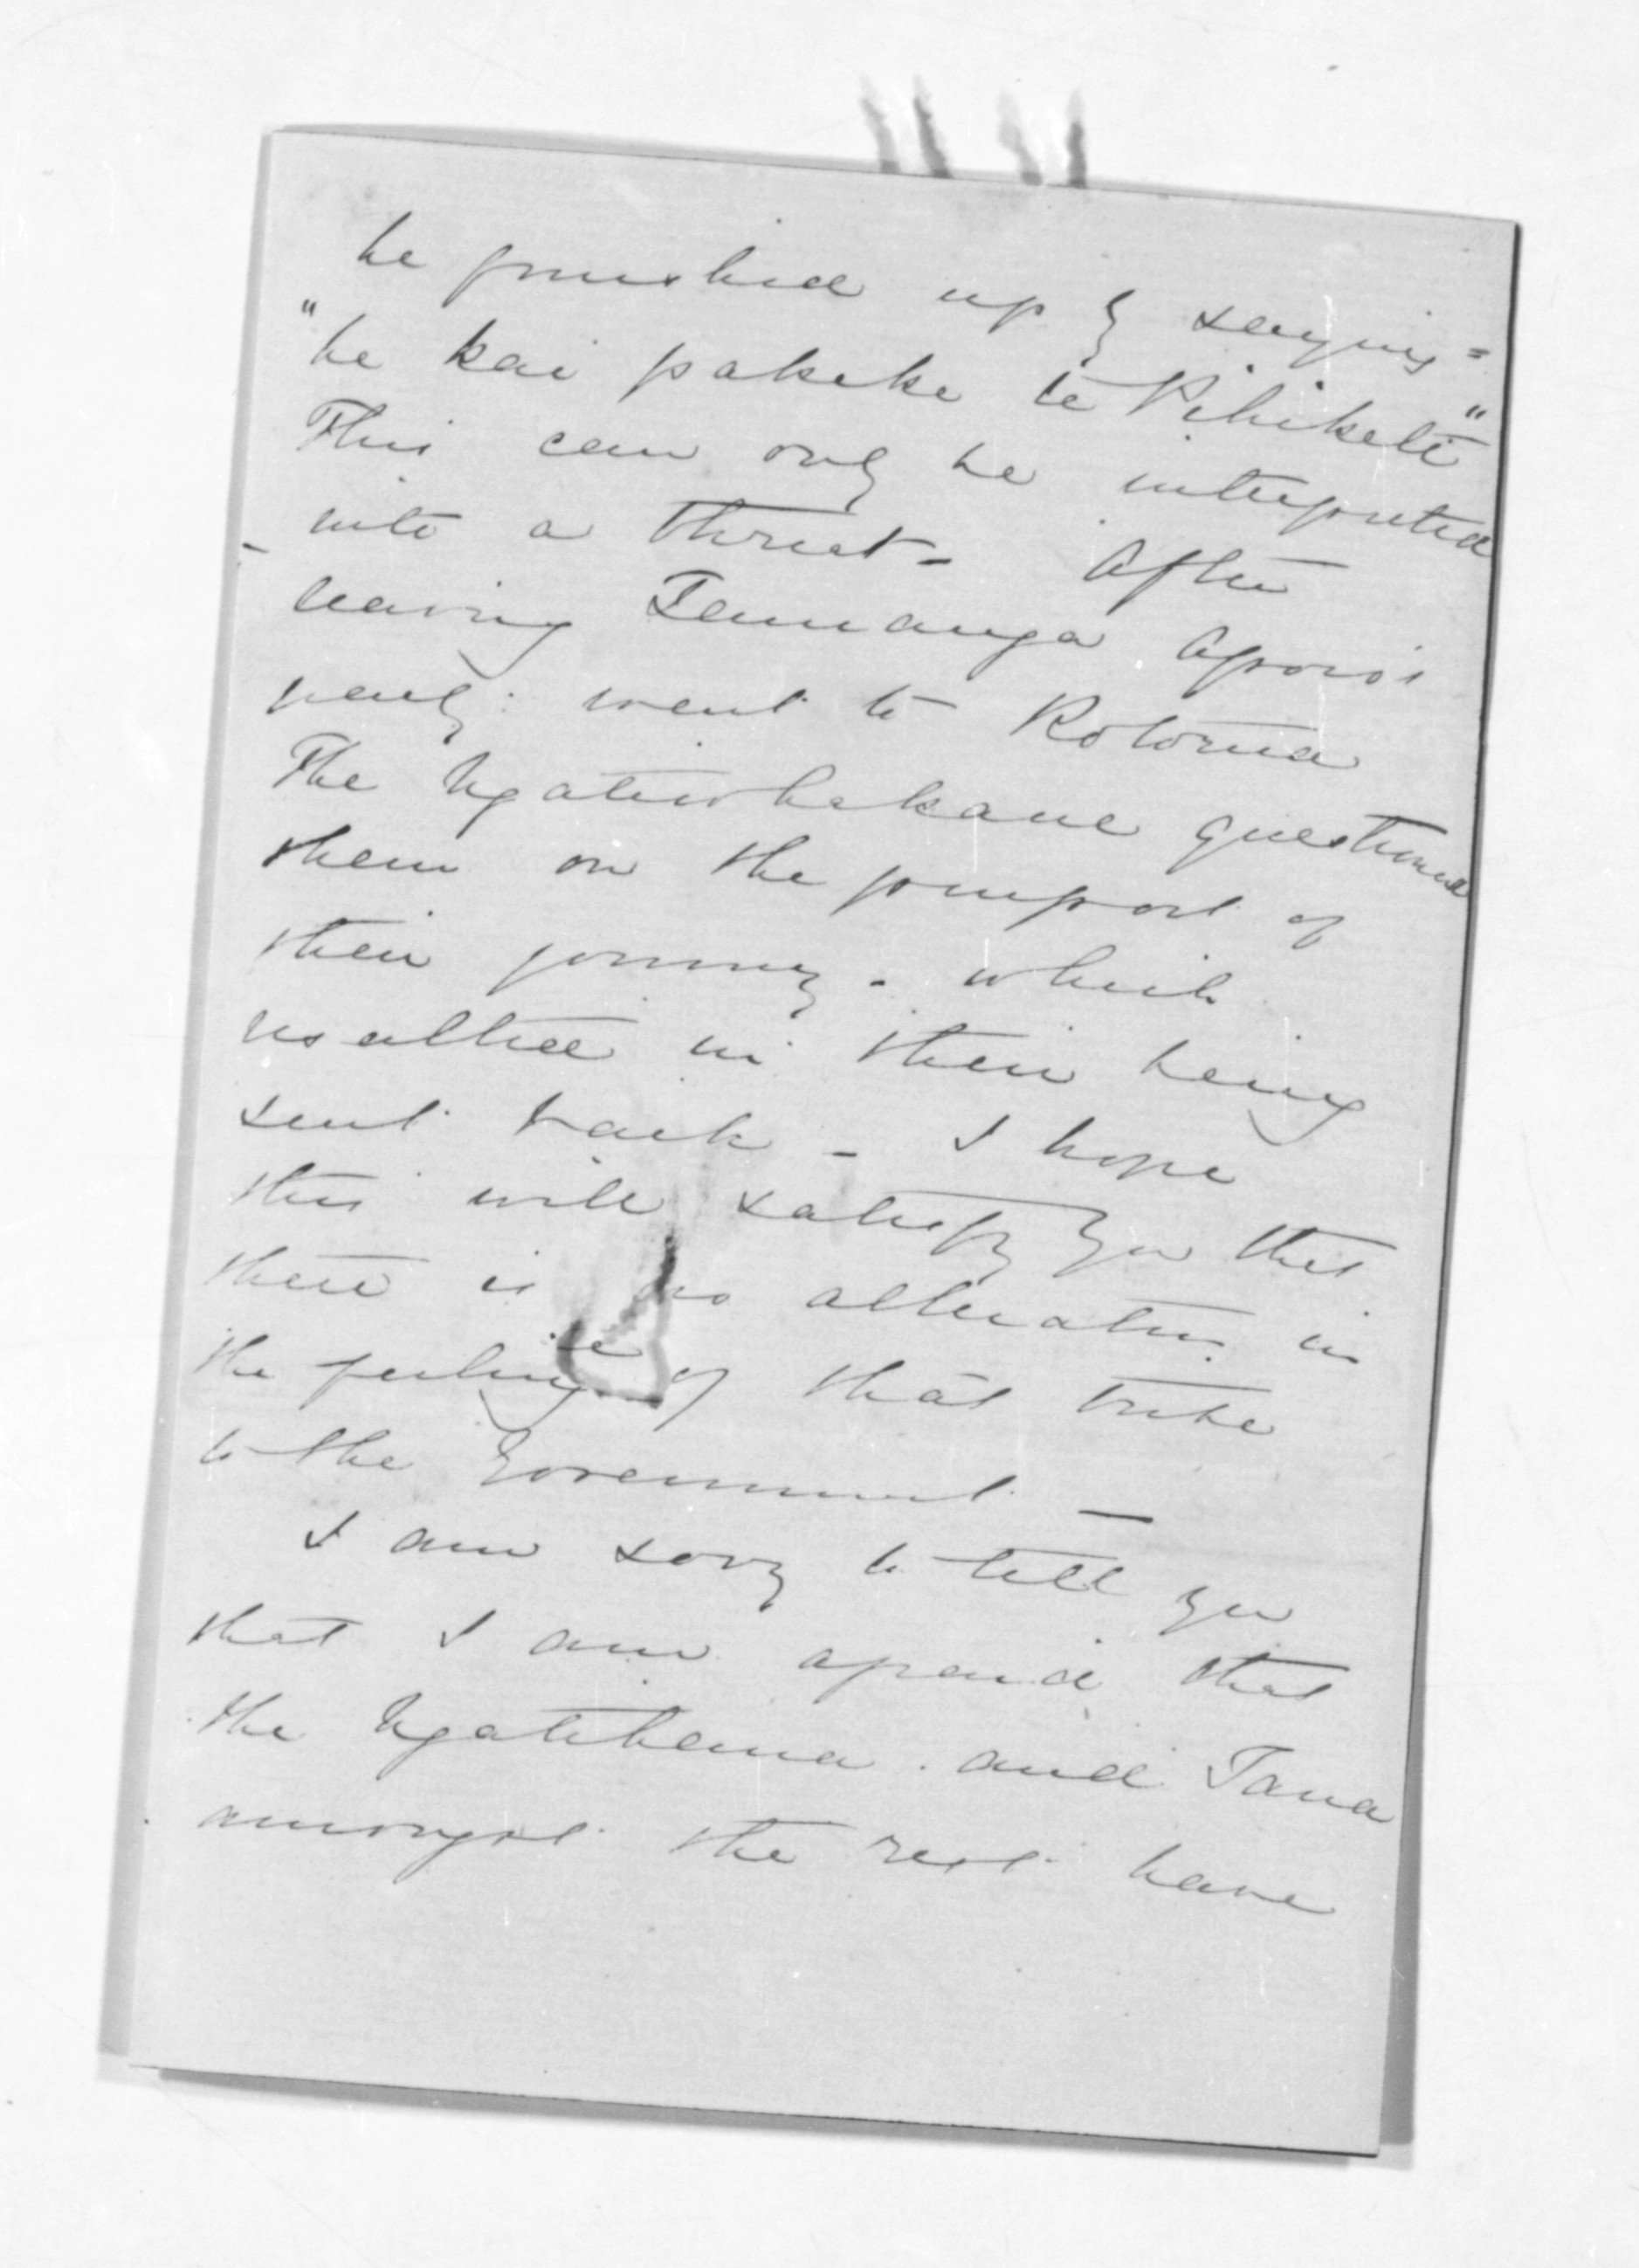 he finished up by saying =
"he kai pakeke te Pihikete"
This can only be interpreted
into a threat - After
leaving Taumanga Aporo's
party: went to Rotorua
The Ngatiwhakaue questioned
them on the purport of
their journey - which
resulted in their being
sent back - I hope
this will satisfy you that
there is no alteration in
the feeling of that tribe
to the Government -
I am sorry to tell you
that I am afraid that
the Ngatihaua and Tana
amongst the rest have